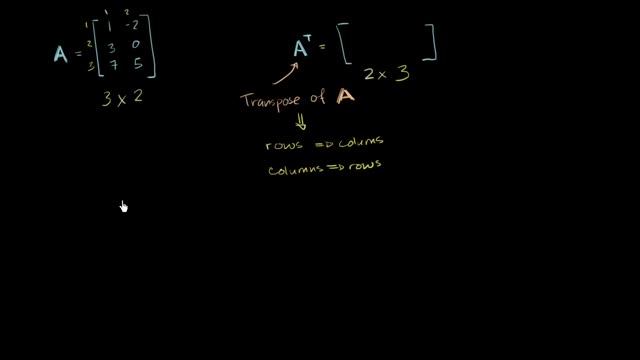 1 2
1 1 -2
A = 2 3 0
3 7 5
3 x 2
Aᵀ =
2 x 3
Transpose of A
⇓
rows ⇒ colums
columns ⇒ rows